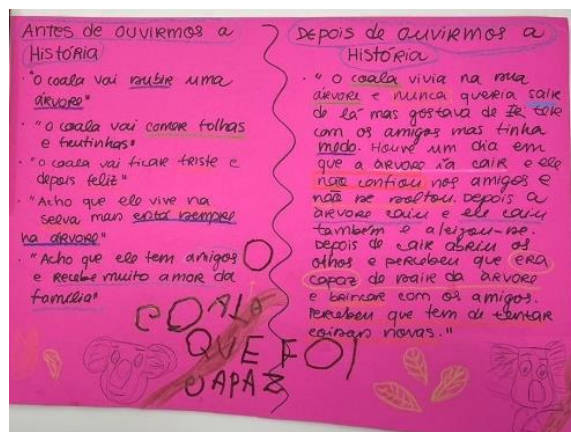 Antes de ouvirmos a
História
· "o coala vai subir uma
árvore"
· "o coala vai comer folhas
e frutinhas"
· "o coala vai ficar triste e
depois feliz"
· "Acho que ele vive na
selva mas está sempre
na árvore"
· "Acho que ele tem amigos
e recebe muito amor da
família"
Depois de ouvirmos a
História
· "O coala vivia na sua
árvore e nunca queria sair
de lá mas gostava de ir ter
com os amigos mas tinha
medo. Houve um dia em
que a árvore ia cair e ele
não confiou nos amigos e
não se soltou. Depois a
árvore caiu e ele caiu
também e aleijou-se.
Depois de cair abriu os
olhos e percebeu que era
capaz de sair da árvore
e brincar com os amigos.
Percebeu que tem de tentar
coisas novas."
O
COALA
QUE FOI
CAPAZ